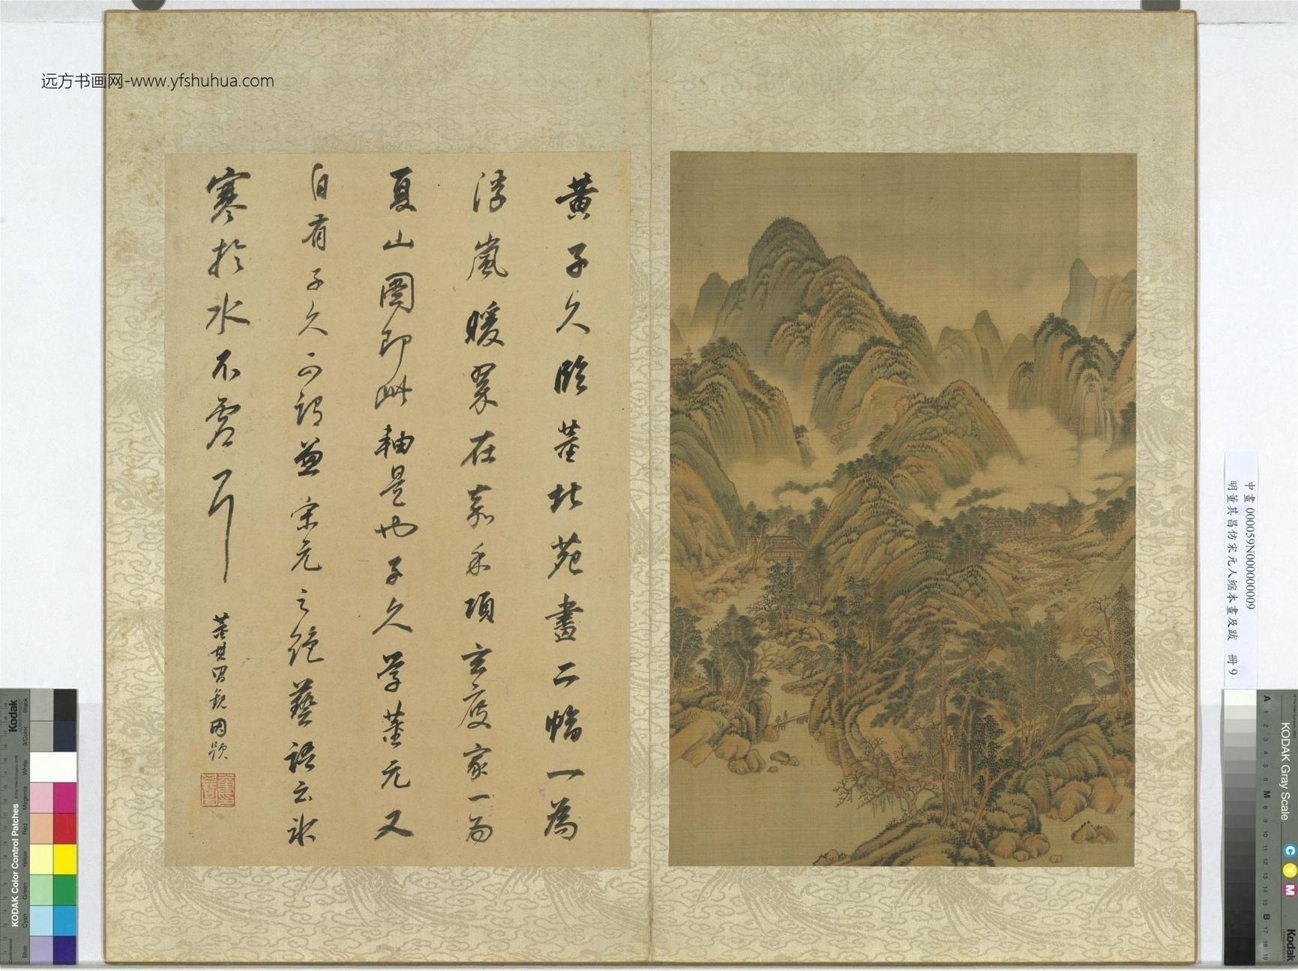 远方书画网-www.yfshuhua.com
黃子久臨董北苑畫二幀一為
浮嵐暖翠在嘉禾項玄度家一為
夏山圖即此軸是也子久學董元又
自有子久可謂兼宋元之絕藝語云冰
寒於水不虛耳
董其昌觀因題
中畫 000059N000000009
明董其昌仿宋元人縮本畫及跋 冊 9
Kodak
KODAK Color Control Patches
KODAK Gray Scale
A
M
B
C
Y
M
Kodak